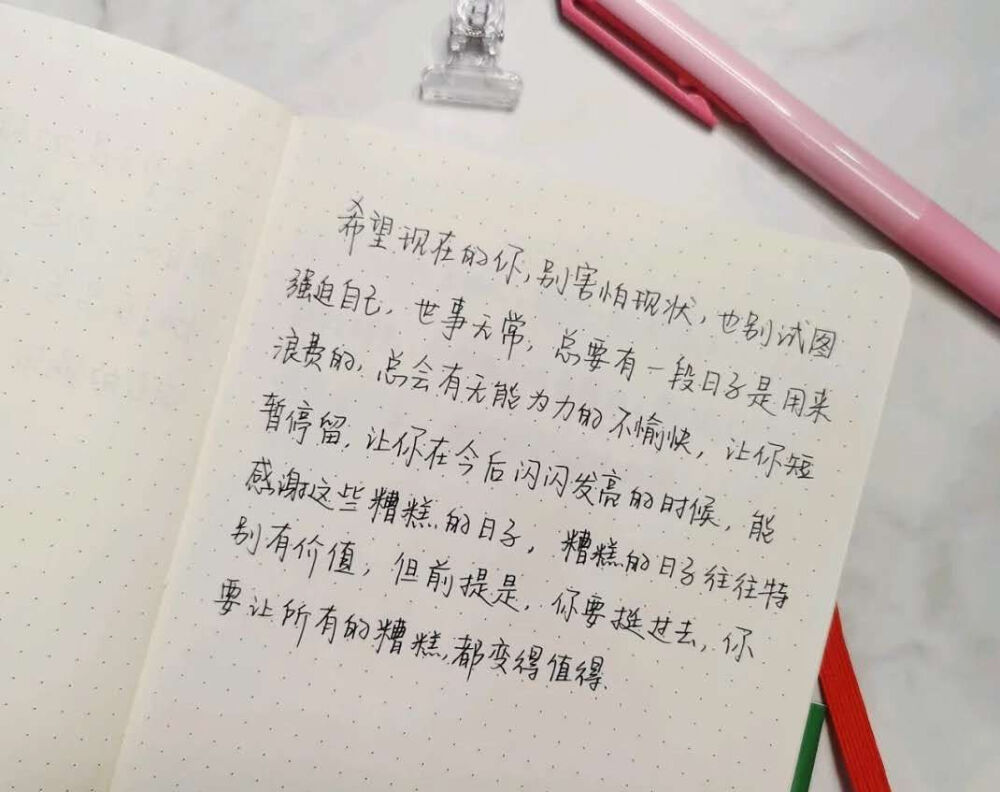 希望现在的你,别害怕现状,也别试图
强迫自己,世事无常,总要有一段日子是用来
浪费的,总会有无能为力的不愉快,让你短
暂停留,让你在今后闪闪发高的时候,能
感谢这些糟糕的日子,糟糕的日子往往特
别有价值,但前提是,你要挺过去,你
要让所有的糟糕,都变得值得.